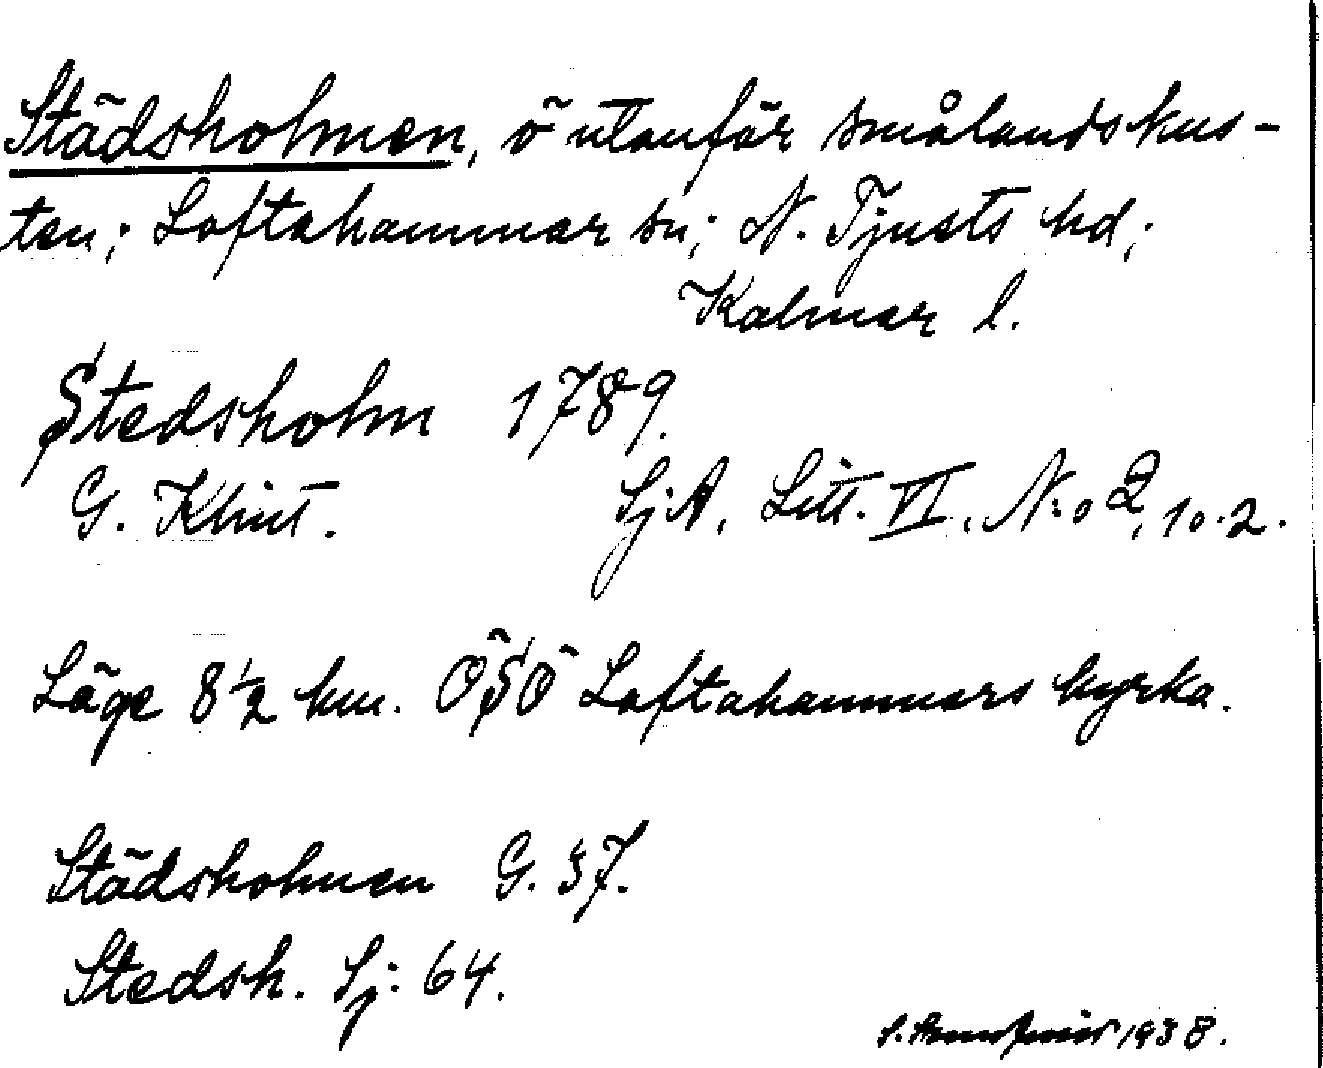 Städsholmen, ö utanför smålandskus-
ten; Loftahammar sn; N. Tjusts hd;
Kalmar l.
Stedsholm 1789.
G. Klint. SjA, Litt. VI. N:o 2, 10.2.
Läge 8 1/2 km. ÖSÖ Loftahammars kyrka.
Städsholmen G. 37.
Stedsh. Sj: 64.
S. 1938.